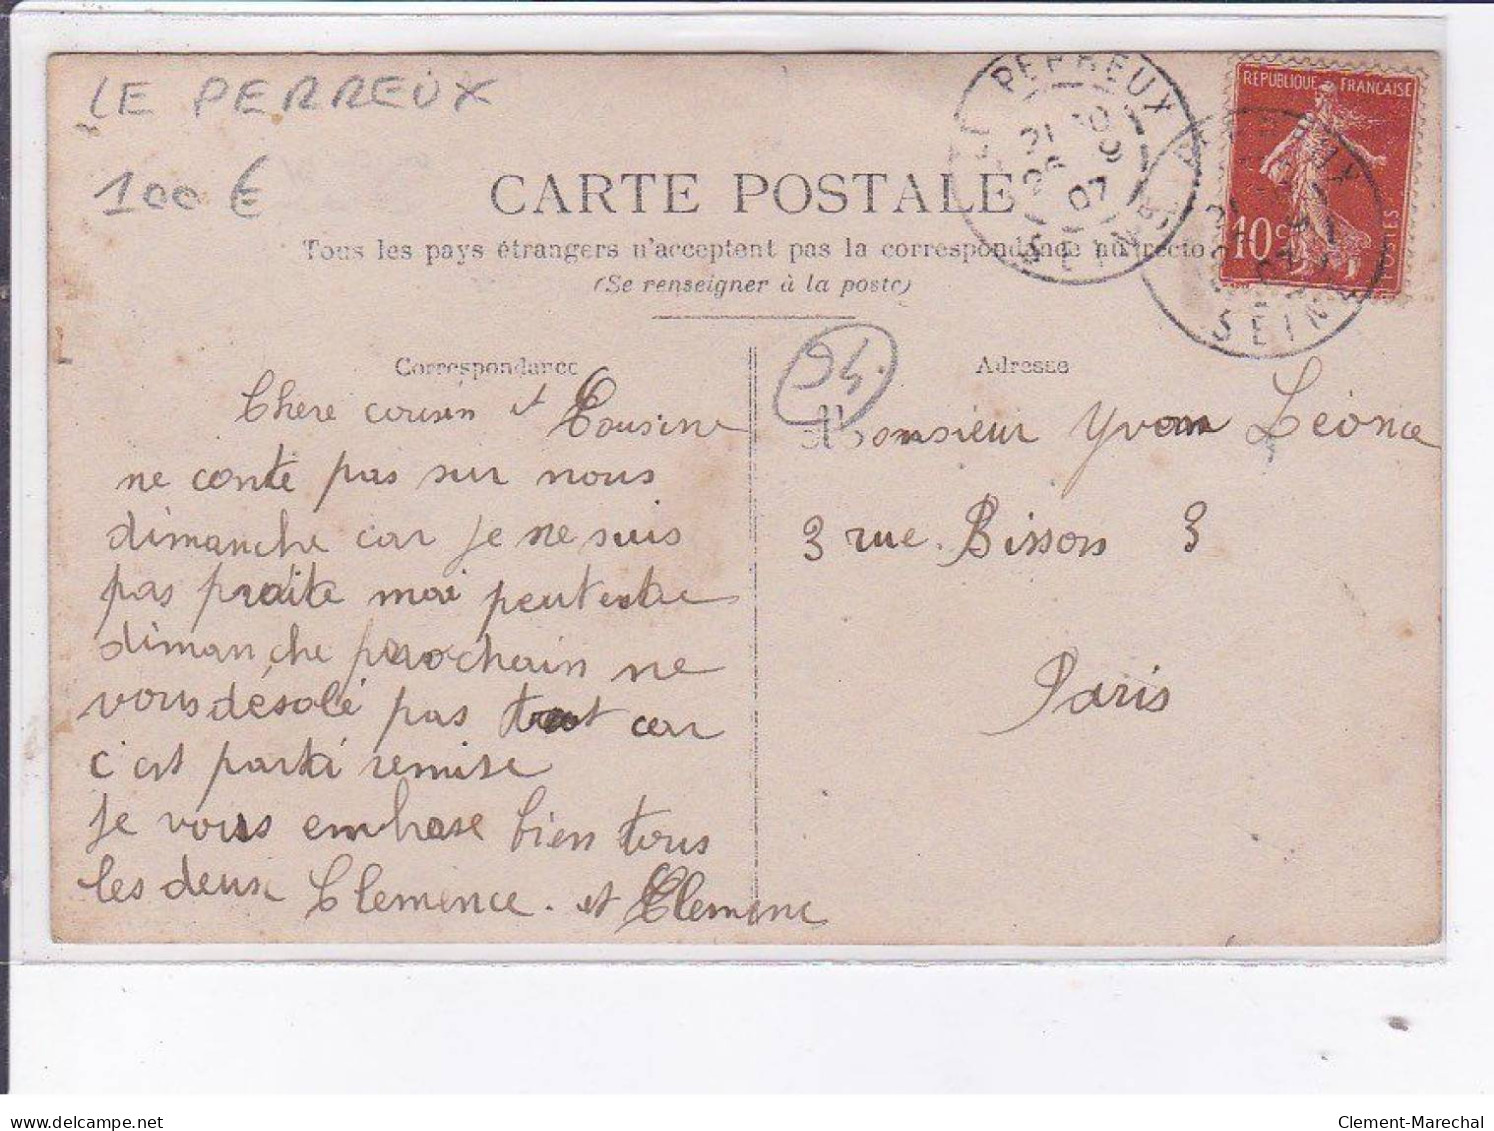 LE PERREUX
100 €
94.
CARTE POSTALE
Tous les pays étrangers n'acceptent pas la correspondance au recto
(Se renseigner à la poste)
Correspondance
Chere cousin et Cousine
ne conte pas sur nous
dimanche car je ne suis
pas praite mai peut etre
dimanche prochain ne
vous désolé pas tout car
c'est parti remise
Je vous embrase bien tous
les deux Clemence. et Clemenc
Adresse
Monsieur Yvon Léonce
3 rue. Bisson 3
Paris
REPUBLIQUE FRANCAISE
10 c
POSTES
LE PERREUX
21 30
26
07
SEINE
LE PERREUX
SEINE
delcampe.net
Clement-Marechal